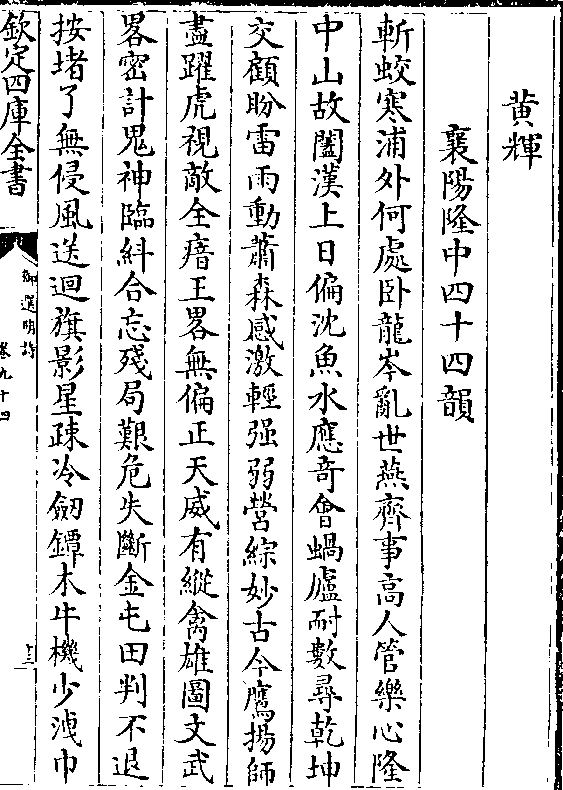 黄輝
襄陽隆中四十四韻
斬蛟寒浦外何處卧龍岑亂世燕齊事高人管樂心隆
中山故闔漢上日偏沈魚水應竒會蝸廬耐數尋乾坤
交顧盼雷雨動蕭森感激輕强弱營綜妙古今鷹揚師
盡躍虎視敵全瘖王畧無偏正天威有縱禽雄圖文武
畧密計鬼神臨糾合忘殘局艱危失斷金屯田判不退
按堵了無侵風送迴旗影星疎冷劒鐔木牛機少洩巾
欽定四庫全書
御選明詩
卷九十四
十三